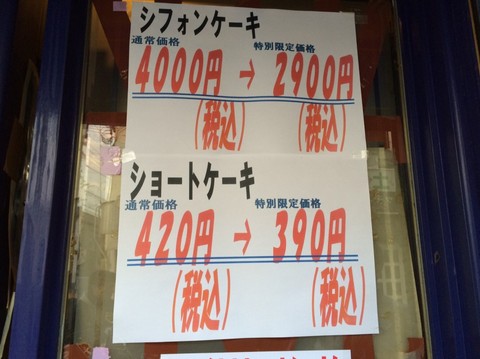 シフォンケーキ
通常価格 特別限定価格
4000円 → 2900円
(税込) (税込)
ショートケーキ
通常価格 特別限定価格
420円 → 390円
(税込) (税込)